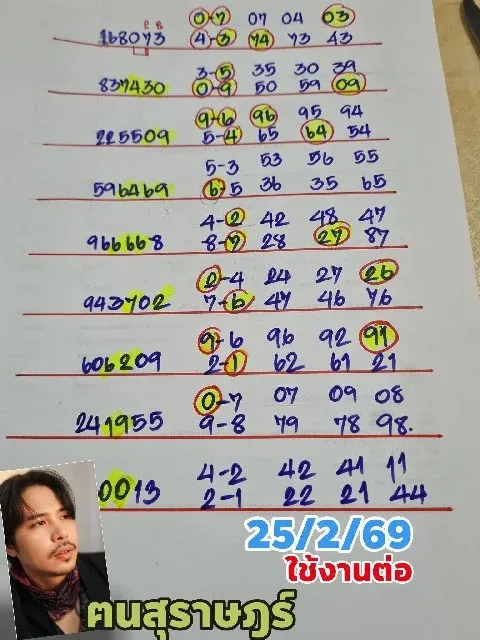 2 8
0-7 07 04 03
168073 4-3 74 73 43
3-5 35 30 39
837430 0-9 50 59 09
9-6 96 95 94
225509 5-4 65 64 54
5-3 53 56 55
596469 6-5 36 35 65
4-2 42 48 47
966668 8-7 28 27 87
2-4 24 27 26
943702 7-6 47 46 76
9-6 96 92 91
606209 2-1 62 61 21
0-7 07 09 08
241955 9-8 79 78 98.
4-2 42 41 11
0013 2-1 22 21 44
25/2/69
ใช้งานต่อ
ฅนสุราษฎร์